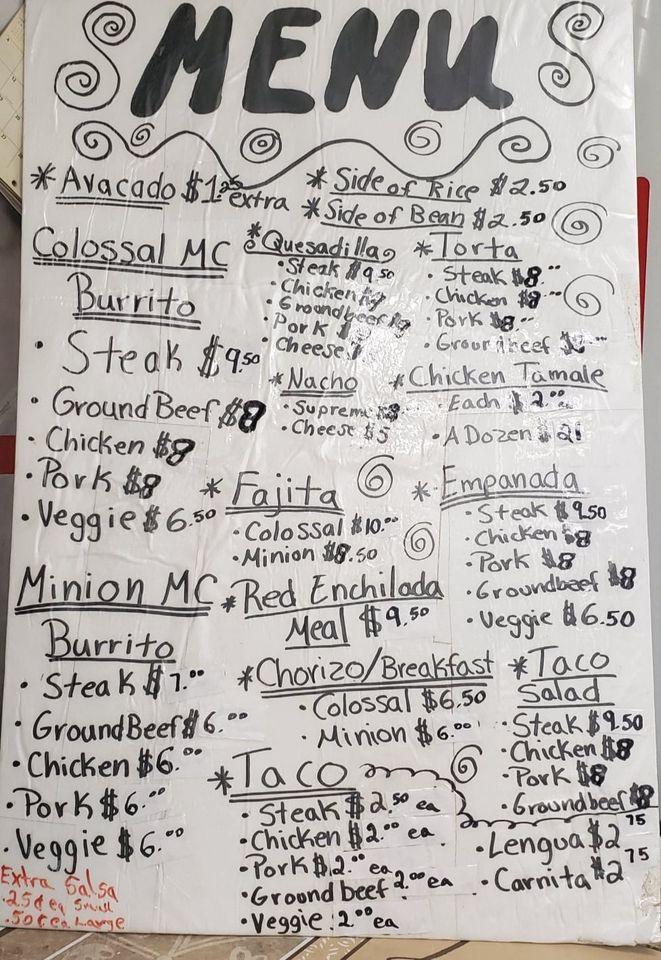 MENU
* Avacado $1.25 extra
* Side of Rice $2.50
* Side of Bean $2.50
Colossal MC
Burrito
• Steak $9.50
• Ground Beef $8
• Chicken $8
• Pork $8
• Veggie $6.50
Minion MC
Burrito
• Steak $7.00
• Ground Beef $6.00
• Chicken $6.00
• Pork $6.00
• Veggie $6.00
Extra Salsa
.25¢ ea Small
.50¢ ea Large
* Quesadilla
• Steak $9.50
• Chicken
• Groundbeef
• Pork
• Cheese
* Nacho
• Supreme
• Cheese $5
* Fajita
• Colossal $10.00
• Minion $8.50
* Red Enchilada
Meal $9.50
* Chorizo/Breakfast
• Colossal $6.50
• Minion $6.00
* Taco
• Steak $2.50 ea
• Chicken $2.00 ea
• Pork $2.00 ea
• Ground beef 2.00 ea
• Veggie 2.00 ea
• Lengua $2.75
• Carnita $2.75
* Torta
• Steak $8.00
• Chicken $8.00
• Pork $8.00
• Groundbeef
* Chicken Tamale
• Each $2.00
• A Dozen $21
* Empanada
• Steak $9.50
• Chicken $8
• Pork $8
• Groundbeef $8
• Veggie $6.50
* Taco
Salad
• Steak $9.50
• Chicken $8
• Pork $8
• Groundbeef $8